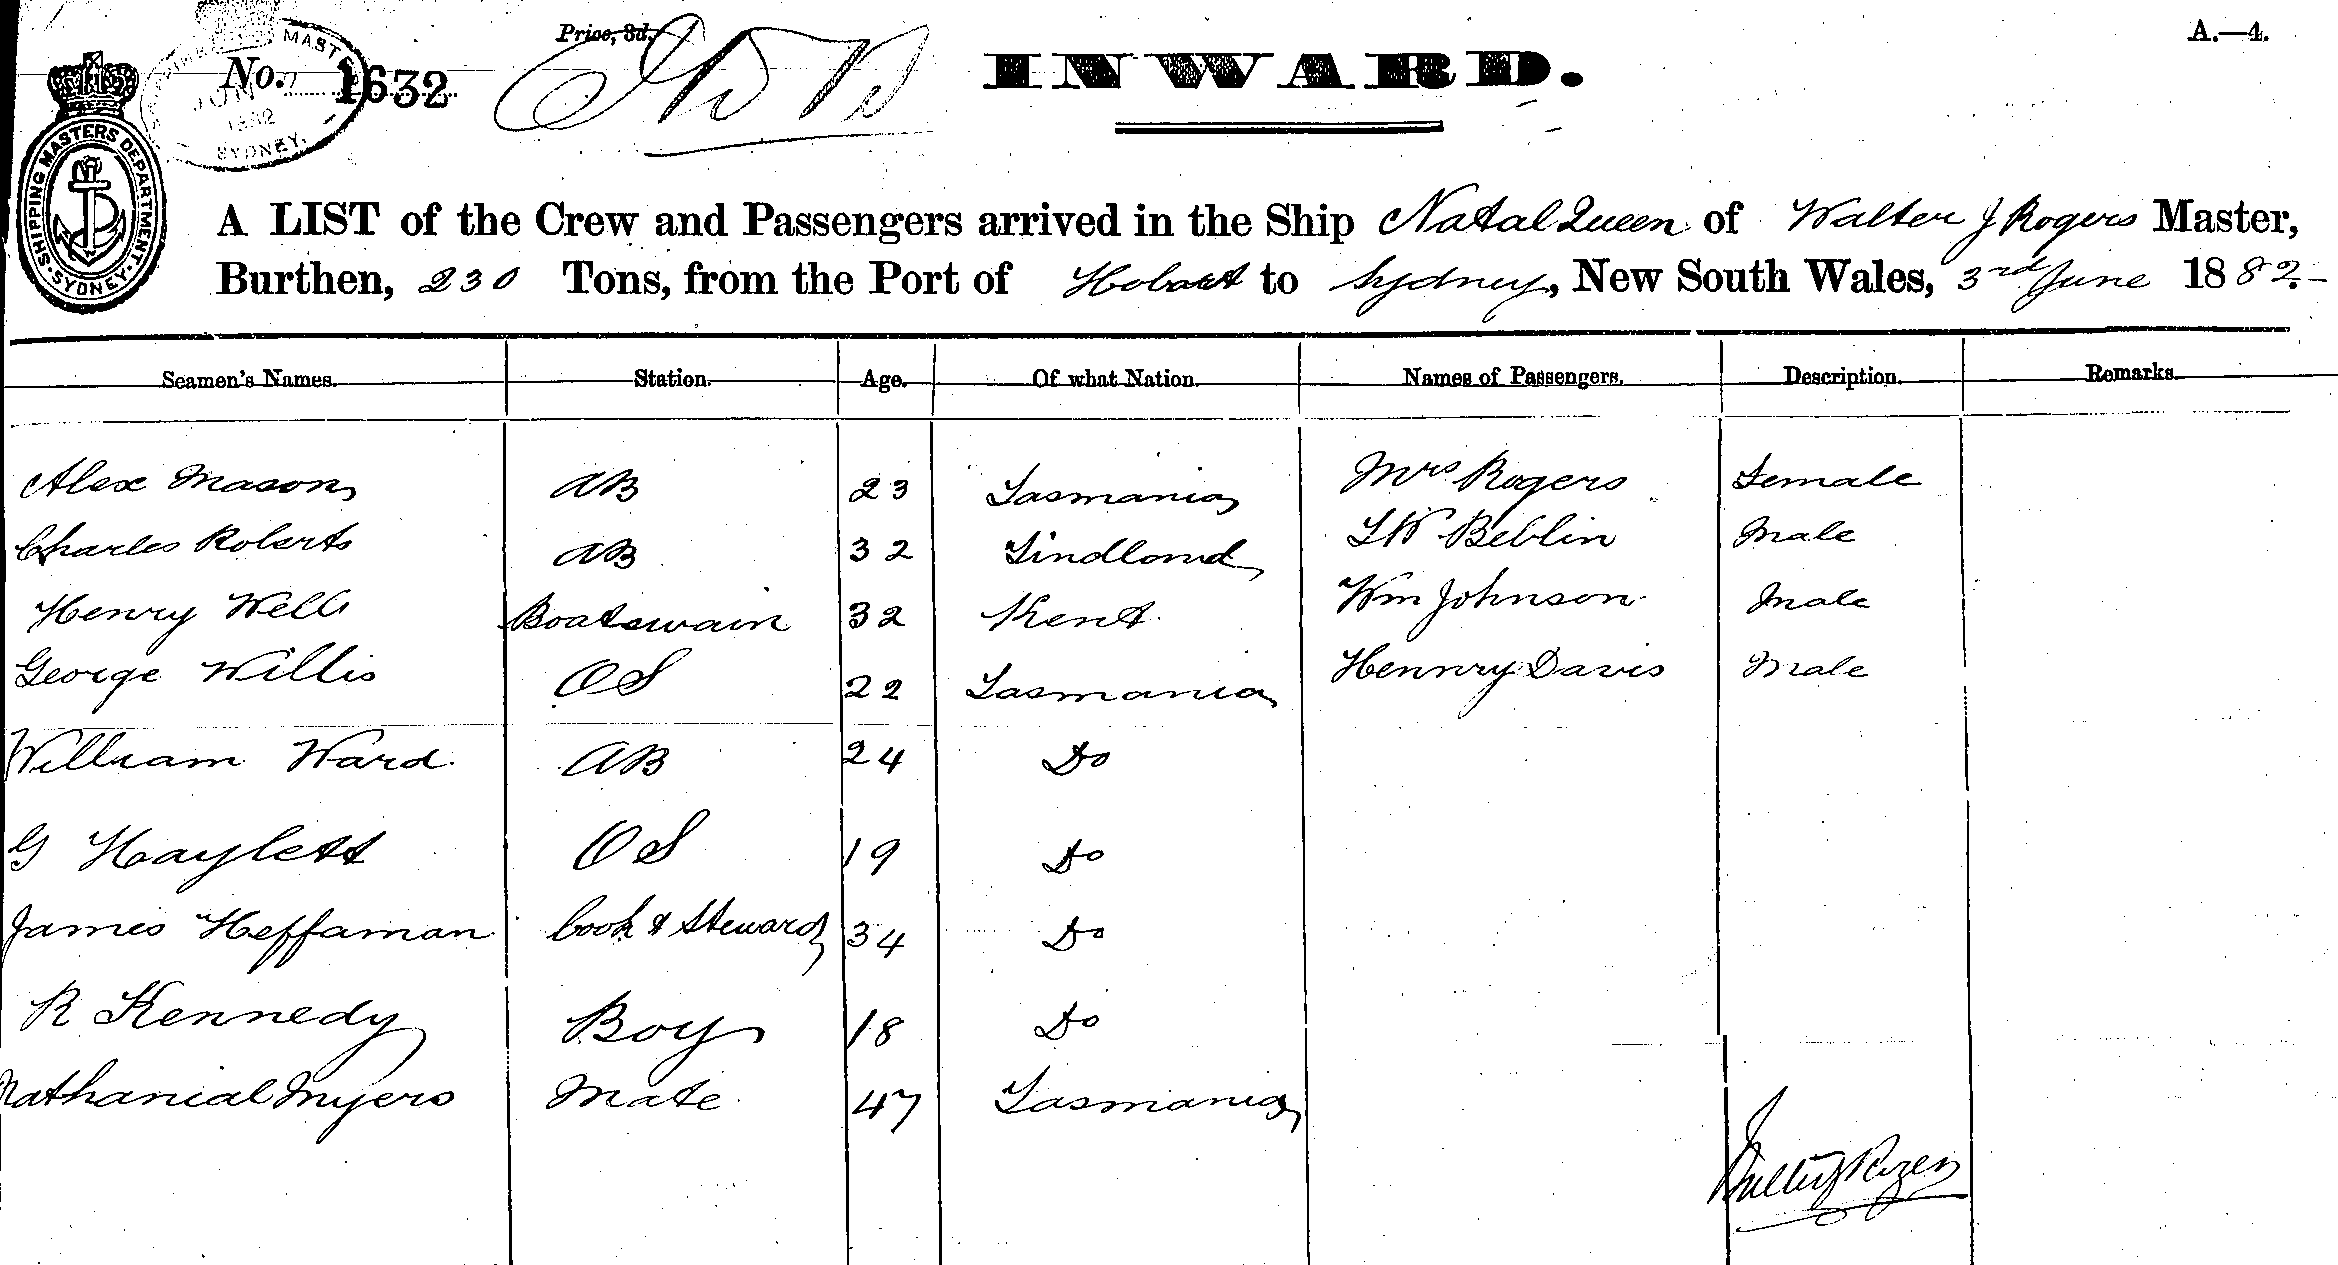 Price, 3d.
A.—4.
No. 1632
INWARD.
SHIPPING MASTERS DEPARTMENT. SYDNEY.
MAST
JUN
1882
SYDNEY.
A LIST of the Crew and Passengers arrived in the Ship Natal Queen of Walter J Rogers Master,
Burthen, 230 Tons, from the Port of Hobart to Sydney, New South Wales, 3rd June 1882.
Seamen's Names. Station. Age. Of what Nation. Names of Passengers. Description. Remarks.
Alex Mason AB 23 Tasmania Mrs Rogers Female
Charles Roberts AB 32 Findland Beblin Male
Henry Wells Boatswain 32 Kent Wm Johnson Male
George Willis OS 22 Tasmania Hennry Davis Male
William Ward AB 24 Do
G Haylett OS 19 Do
James Heffarnan Cook & Steward 34 Do
R Kennedy Boy 18 Do
Nathanial Myers Mate 47 Tasmania
Walter J Rogers